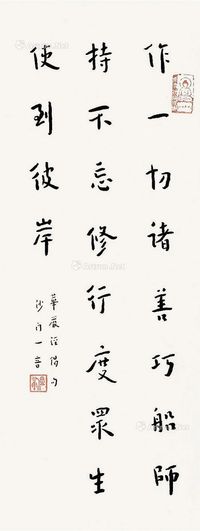 作一切诸善巧船師
持不忘修行度眾生
使到彼岸
華嚴經偈句
沙門一音